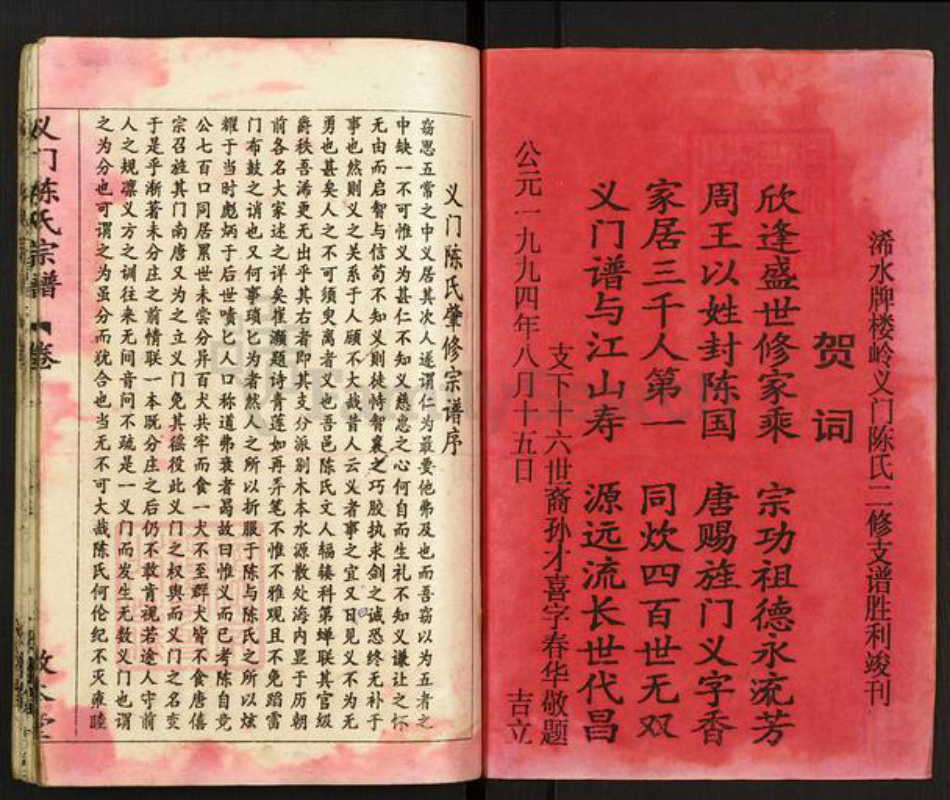 浠水牌楼岭义门陈氏二修支谱胜利竣刊
贺词
欣逢盛世修家乘 宗功祖德永流芳
周王以姓封陈国 唐赐旌门义字香
家居三千人第一 同炊四百世无双
义门谱与江山寿 源远流长世代昌
支下十六世裔孙才喜字春华敬题
公元一九九四年八月十五日 吉立
义门陈氏肇修宗谱序
窃思五常之中义居其次人遂谓仁为最要他弗及也而吾窃以为五者之
中缺一不可惟义为甚仁不知义慈惠之心何自而生礼不知义谦让之怀
无由而启智与信苟不知义则徒恃智囊之巧胶执求剑之诚恐终无补于
事也然则义之关系于人顾不大哉昔人云义者事之宜又曰见义不为无
勇也甚矣人之不可须臾离者义也吾邑陈氏文人辐辏科第蝉联其官级
爵秩吾浠更无出乎其右者即其支分派别木本水源散处海内显于历朝
前各名大家述之详矣惟灏题诗青莲如再弄笔不惟不雅观且不免蹈雷
门布鼓之诮也又何事琐匕为者然人之所以折服于陈与陈氏之所以炫
耀于当时彪炳于后世啧匕人口称道弗衰者曷故曰惟义而已考陈自竞
公七百口同居累世未尝分异百犬共牢而食一犬不至群犬皆不食唐僖
宗召旌其门南唐又为之立义门免其徭役此义门之权舆而义门之名变
于是乎渐著未分庄之前情联一本既分庄之后仍不敢肯视若途人守前
人之规凛义方之训往来无间音问不疏是一义门而发生无数义门也谓
之为分也可谓之为虽分而犹合也当无不可大哉陈氏何伦纪不灭雍睦
义门陈氏宗谱 卷